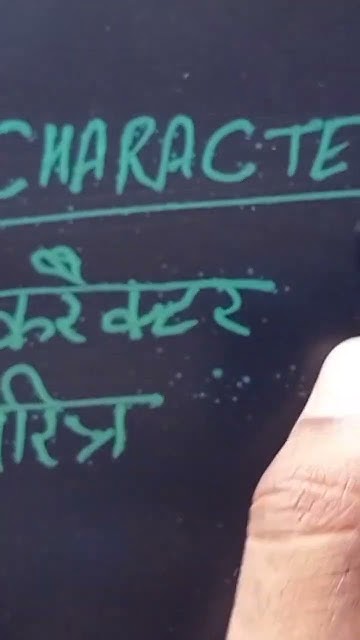 CHARACTE
करैक्टर
रित्र